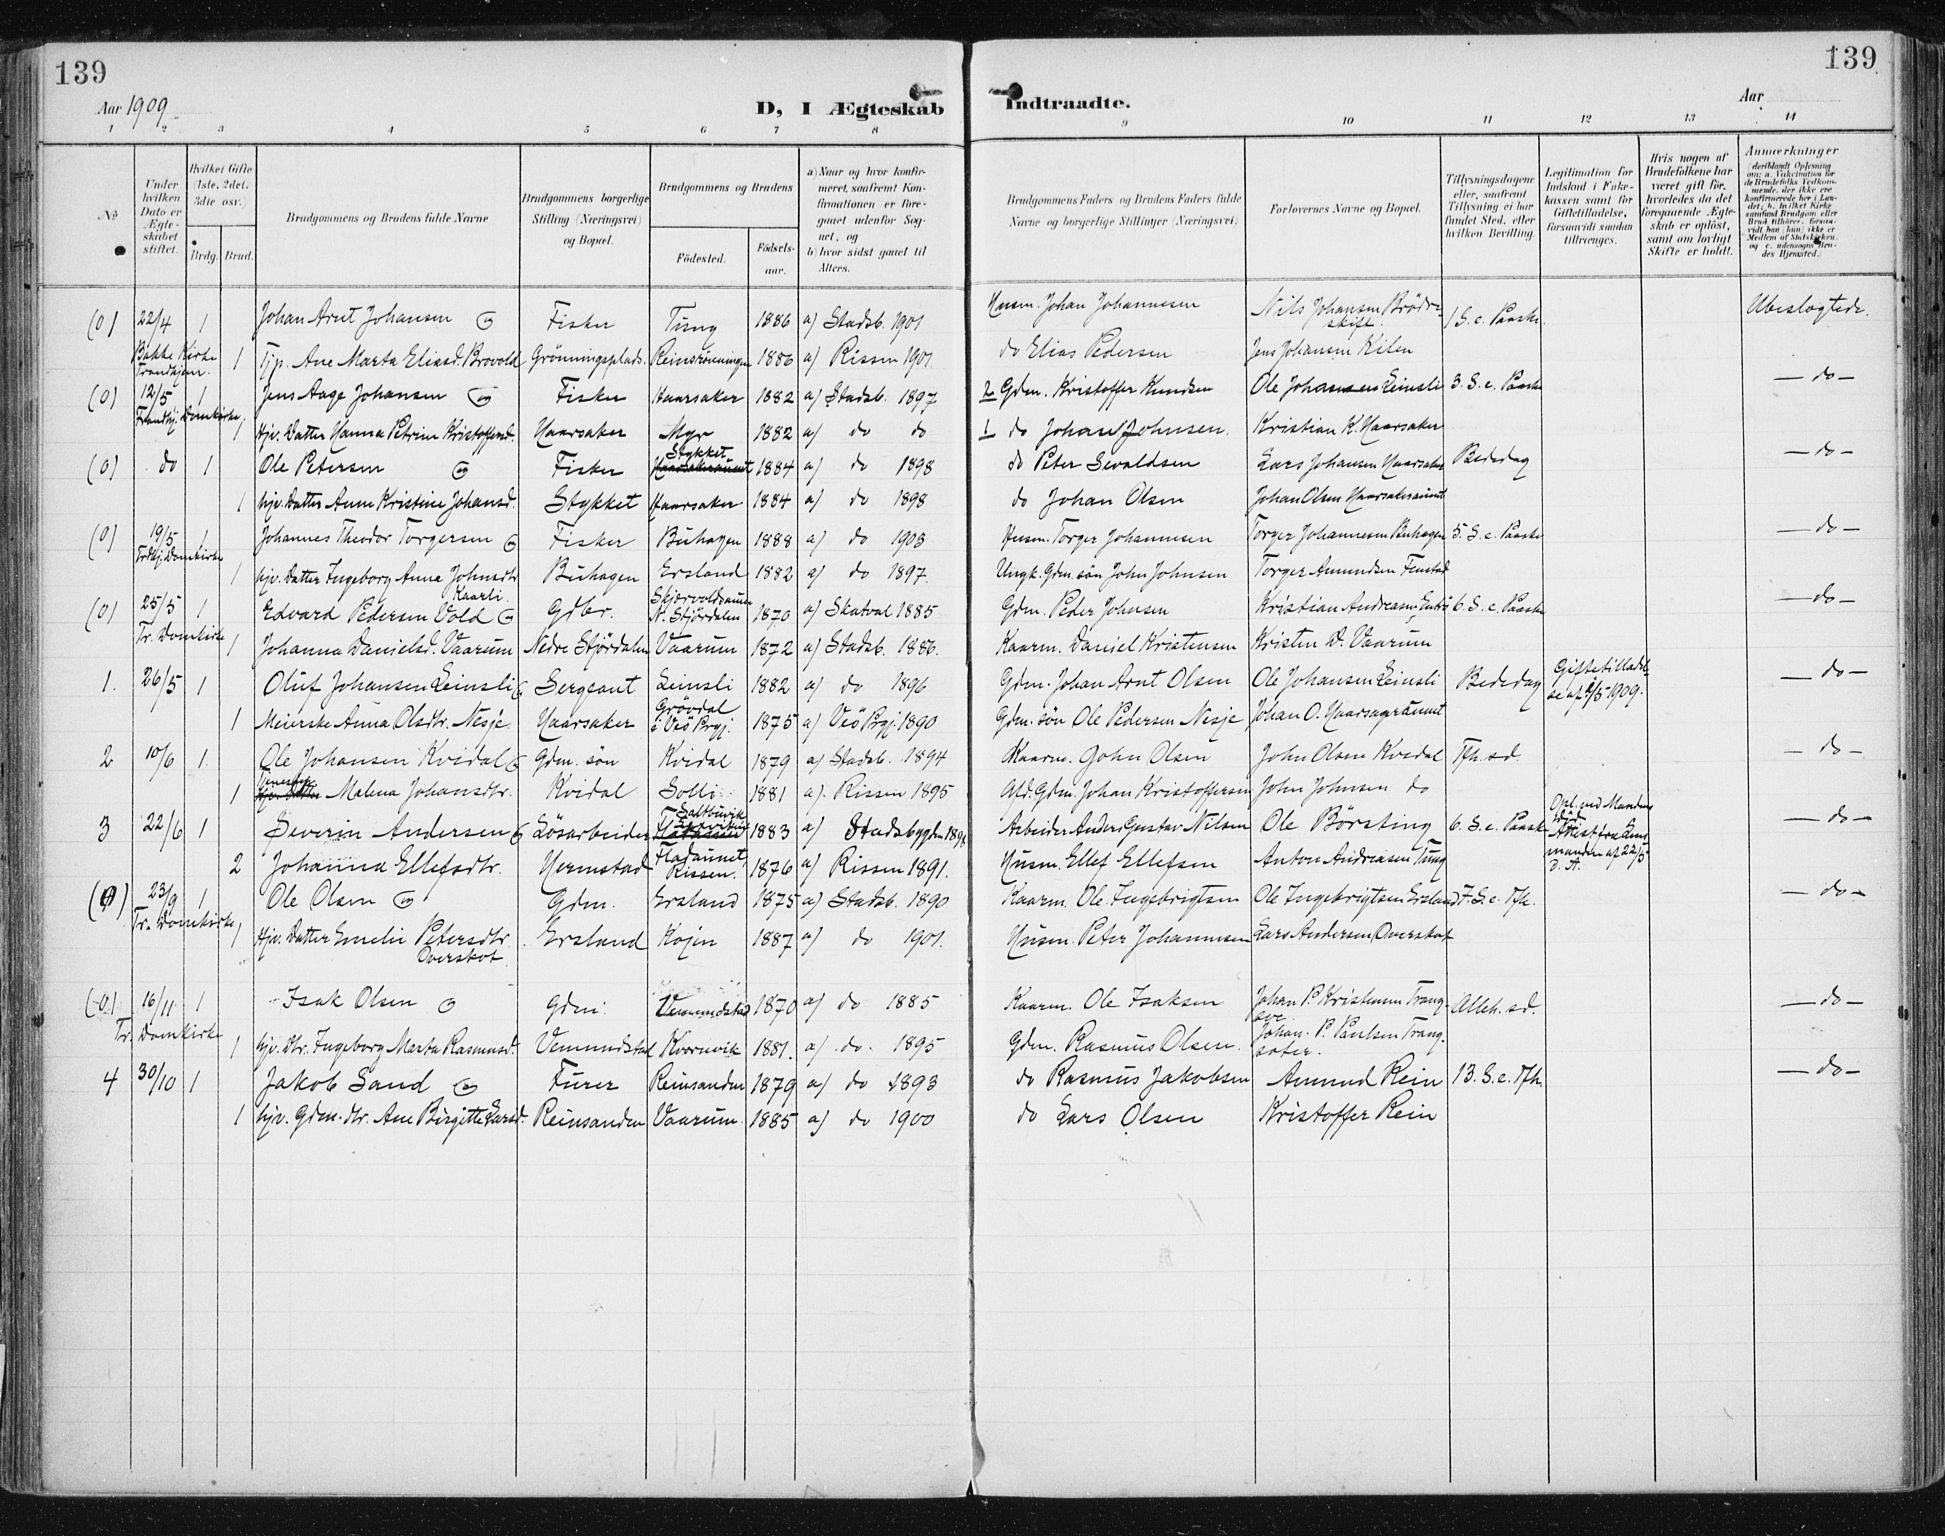 139
139
Aar 1909.
D, I Ægteskab
Indtraadte.
Aar
1 2 3 4 5 6 7 8 9 10 11 12 13 14
No
Under hvilken Dato er Ægteskabet stiftet.
Hvilket Gifte (1ste, 2det, 3die osv.)
Brdg. Brud.
Brudgommens og Brudens fulde Navne
Brudgommens borgerlige Stilling (Næringsvei) og Bopæl.
Brudgommens og Brudens
Fødested.
Fødselsaar.
a) Naar og hvor konfirmeret, saafremt Konfirmationen er foregaaet udenfor Sognet, og
b) hvor sidst gaaet til Alters.
Brudgommens Faders og Brudens Faders fulde Navne og borgerlige Stillinger (Næringsvei).
Forlovernes Navne og Bopæl.
Tillysningsdagene eller, saafremt Tillysning ei har fundet Sted, efter hvilken Bevilling.
Legitimation for Indskud i Enkekassen samt for Giftetilladelse, forsaavidt saadan tiltrænges.
Hvis nogen af Brudefolkene har været gift før, hvorledes da det foregaaende Ægteskab er opløst, samt om lovligt Skifte er holdt.
Anmærkninger
(0) 22/4 1 Johan Arnt Johansen Fisker Tung 1886 a) Stadsb. 1901 Husm. Johan Johannesen Nils Johansen Brødreskift 1 S. e. Paaske Ubeslægtede.
Bakke Kirke Trondhjem. 1 Tjp. Ane Marta Eliasd. Brovold Grönningsplads. Reinsrönningen 1886 a) Rissen 1901 do Elias Pedersen Jens Johansen Kilen
(0) 12/5 1 Jens Aage Johansen Fisker Haarsaker 1882 a) Stadsb. 1897 2 Gdm. Kristoffer Knudsen Ole Johansen Leinsli 3. S. e. Paaske — do —
Trondhj. Domkirke, 1 Hjv. Datter Hanna Petrine Kristoffersd. Haarsaker Myr 1882 a) do do 1 do Johan Johnsen. Kristian K. Haarsaker
(0) do 1 Ole Petersen Fisker Stykket 1884 a) do 1898 do Peter Sevaldsen Lars Johansen Haarsaker Bededag — do —
1 hjv. Datter Anne Kristine Johansd. Stykket Haarsaker 1884 a) do 1898 do Johan Olsen Johan Olsen Haarsakeraunet
(0) 19/5 1 Johannes Theodor Torgersen Fisker Buhagen 1888 a) do 1903 Husm. Torger Johannesen Torger Johannesen Buhagen 5. S. e. Paaske — do —
Trdhj. Domkirke 1 hjv. Datter Ingeborg Anna Johnsdtr Buhagen Ersland 1882 a) do 1897. Ungk. Gdm. søn John Johnsen Torger Amundsen Fenstad
(0) 25/5 1 Edvard Pedersen Vold Kaarli Gdbr. N. Stjördalen 1870 a) Skatval 1885 Gdm. Peder Johnsen Kristian Andreasen 6. S. e. Paaske — do —
Tr. Domkirke 1 Johanna Danielsd. Vaarum Nedre Stjördalen Vaarum 1872 a) Stadsb. 1886. Kaarm. Daniel Kristensen Kristen D. Vaarum
1. 26/5 1 Oluf Johansen Leinsli Sergeant Leinsli 1882 a) do 1896 Gdm. Johan Arnt Olsen Ole Johansen Leinsli Bededag Giftetilladelse af 8/5-1909. — do —
1 Meierske Anna Olsdtr. Nesje. Haarsaker Grövdal i Veö Prgj. 1875 a) Veö Prgj. 1890 Gdm. søn Ole Pedersen Nesje Johan O. Haarsageraunet
2 10/6 1. Ole Johansen Kvidal Gdm. søn Kvidal 1879 a) Stadsb. 1894 Kaarm. John Olsen John Olsen Kvidal Tfh. sd. — do —
1 Malena Johansdtr. Kvidal Solli 1881 a). Rissen 1895 Afd. Gdm. Johan Kristoffersen John Johnsen do
3 22/6 1 Severin Andersen Lösarbeider Saltbuvik 1883 a) Stadsbygden 1898 Arbeider Anders Gustav Nilsen Ole Börsting 6. S. e. Paaske — do —
2 Johanna Ellefsdtr. Hermstad Fladaunet, Rissen. 1876 a) Rissen 1891. Husm. Ellef Ellefsen Anton Andreasen Tung
(0) 23/9 1 Ole Olsen Gdm. Ersland 1875 a) Stadsb. 1890 Kaarm. Ole Ingebrigtsen Ole Ingebrigtsen Ersland 7. S. e. Tfh. — do —
Tr. Domkirke, 1 Hjv. Datter Emelie Petersdtr. Overskot Ersland Kojen 1887 a) do 1901. Husm. Peter Johannesen Lars Andersen Overskot
(0) 16/11 1 Isak Olsen Gdm. Vemundstad 1870 a) do 1885 Kaarm. Ole Isaksen Johan P. Kristensen Alleh. sd. — do —
Tr. Domkirke 1 hjv. Dtr. Ingeborg Marta Rasmusd. Vemundstad Kvernvik 1881. a) do. 1895 Gdm. Rasmus Olsen. Johan. P. Paulsen
4 30/10 1 Jakob Sand Furer Reinsanden 1879 a) do 1893 do Rasmus Jakobsen Amund Rein 13. S. e. Tfh. — do —
1 hjv. Gdm. dtr. Ane Birgitte Larsd. Reinsanden Vaarum 1885 a) do 1900 do Lars Olsen Kristoffer Rein